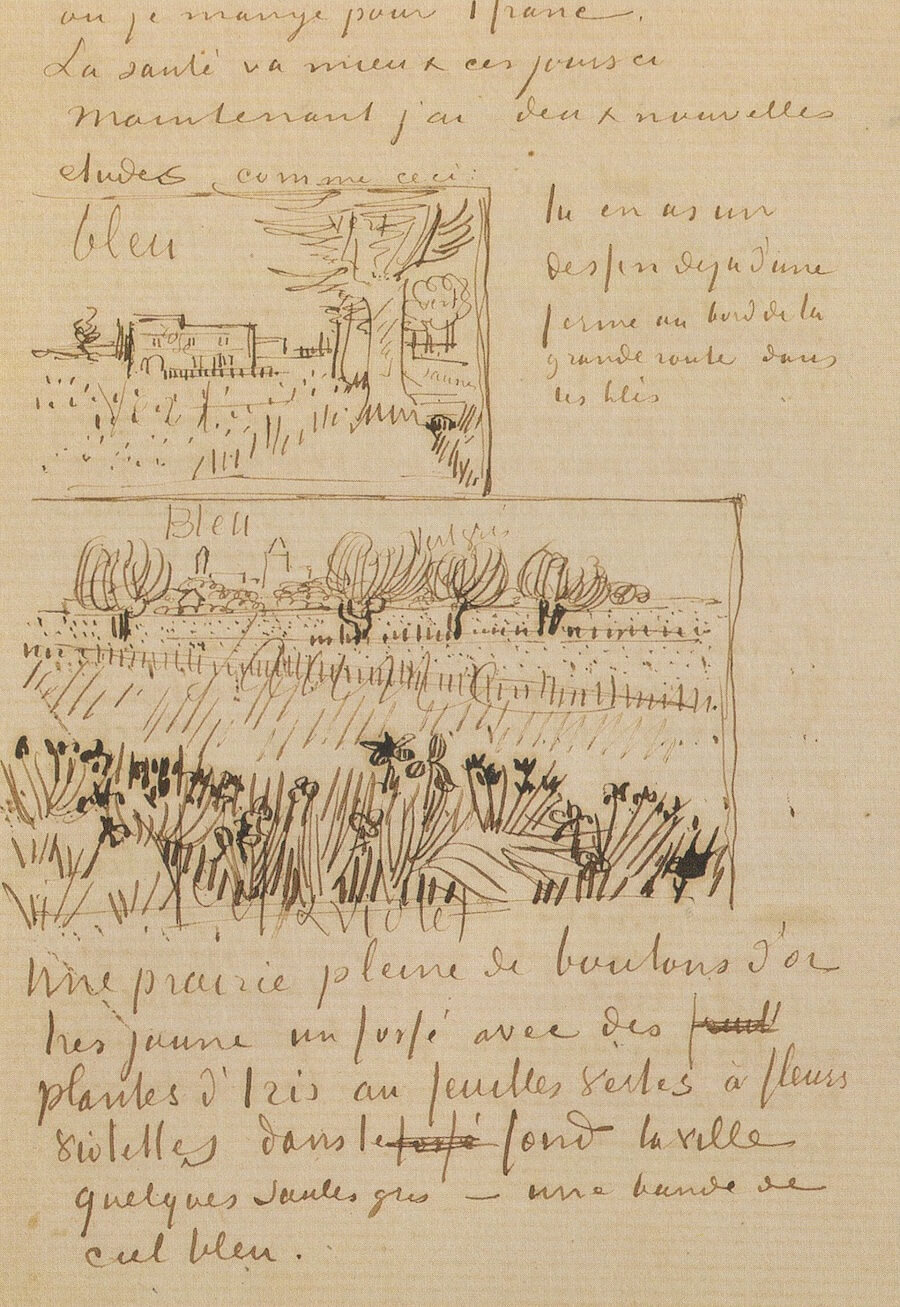 ou je mange pour 1 franc.
La santé va mieux ces jours ci
Maintenant j'ai deux nouvelles
etudes comme ceci:
bleu
vert
vert
rose
jaune
tu en as un
dessin deja d'une
ferme au bord de la
grande route dans
les blés
Bleu
vert gris
Violet
Une prairie pleine de boutons d'or
tres jaune un fossé avec des
plantes d'Iris au feuilles vertes à fleurs
violettes dans le fossé fond la ville
quelques saules gris – une bande de
ciel bleu.